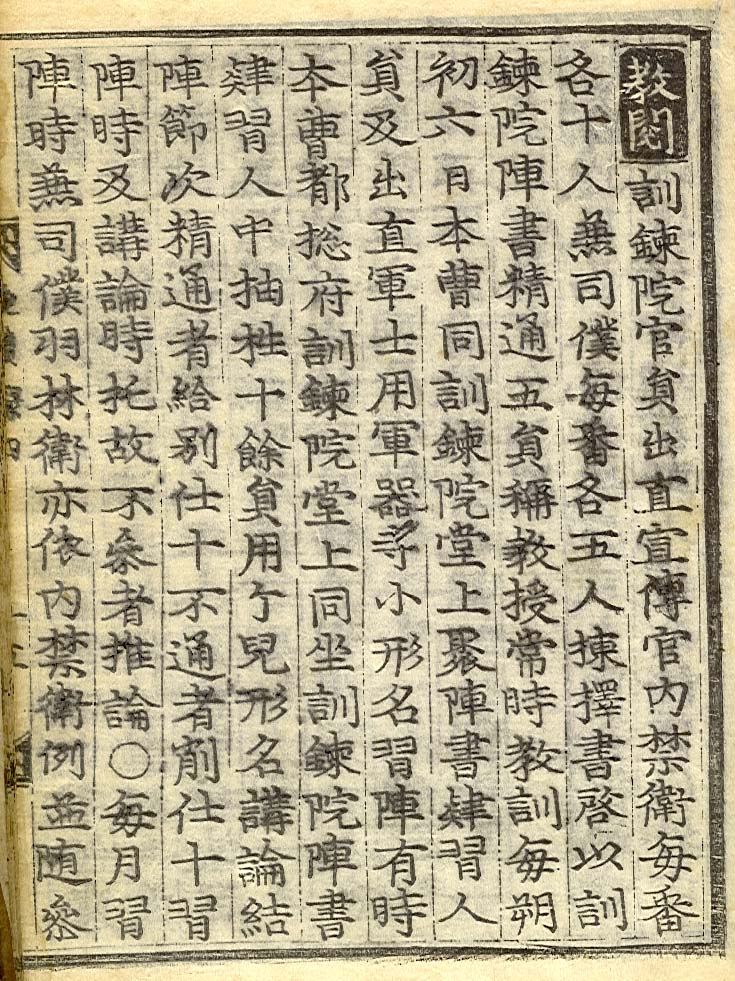 教閱 訓鍊院官負出直宣傳官內禁衛每番
各十人兼司僕每番各五人揀擇書啓以訓
鍊院陣書精通五負稱敎授常時教訓每朔
初六日本曹同訓鍊院堂上聚陣書肄習人
負及出直軍士用軍器寺小形名習陣有時
本曹都摠府訓鍊院堂上同坐訓鍊院陣書
肄習人中抽牲十餘負用亇兒形名講論結
陣節次精通者給別仕十不通者削仕十習
陣時及講論時托故不叅者推論○每月習
陣時兼司僕羽林衛亦依內禁衛例並随叅